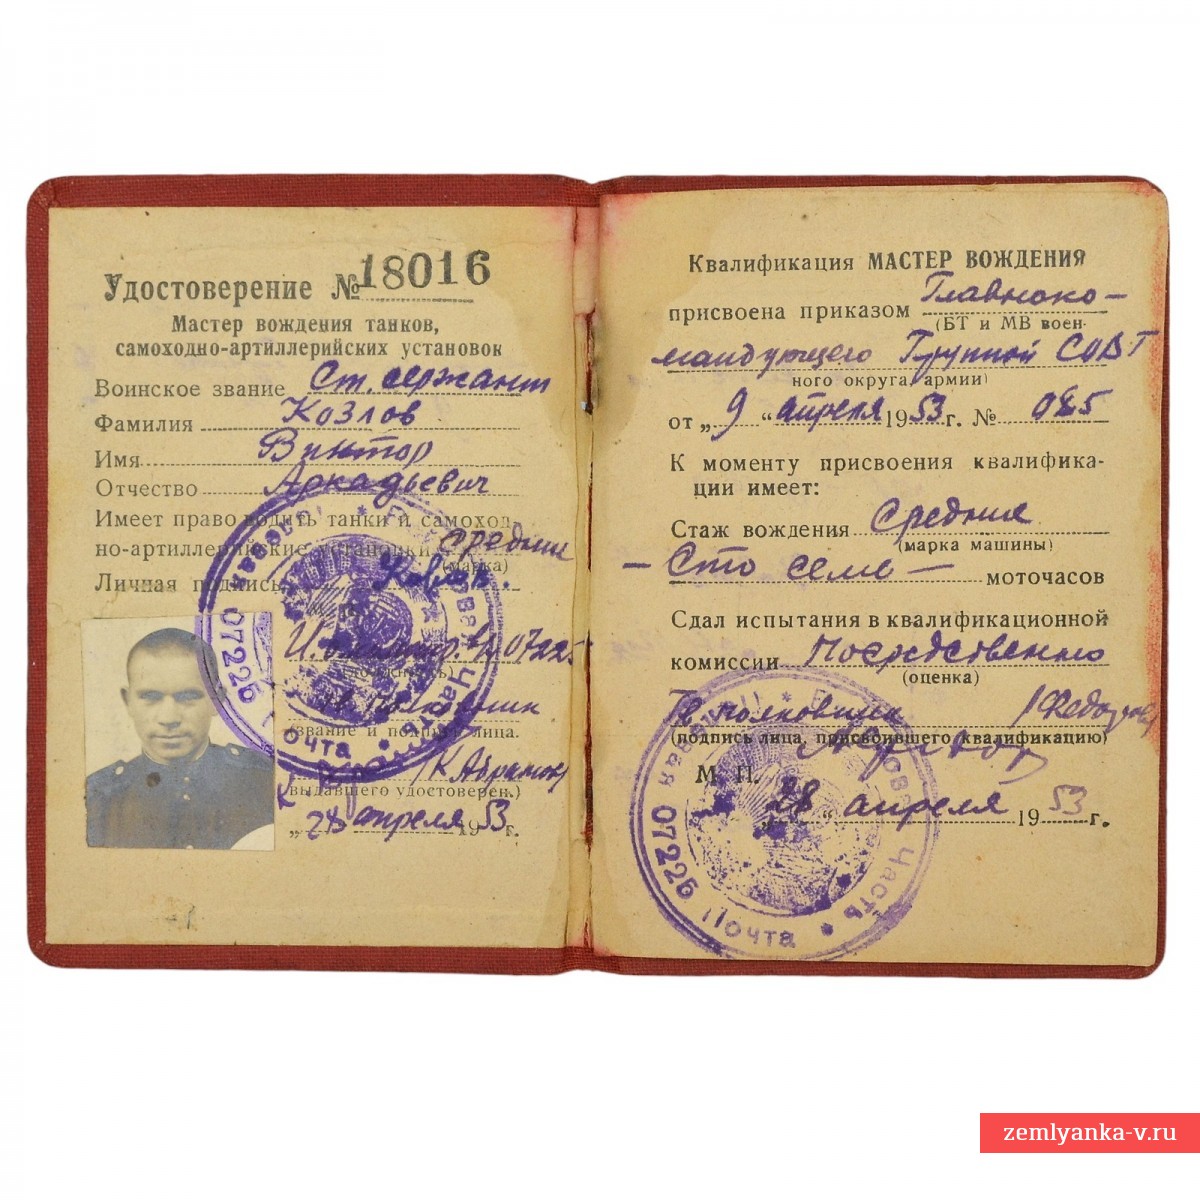 Удостоверение № 18016
Мастер вождения танков,
самоходно-артиллерийских установок
Воинское звание Ст. сержант
Фамилия Козлов
Имя Виктор
Отчество Аркадьевич
Имеет право водить танки и самоход-
но-артиллерийские установки средние
(марка)
Личная подпись
07225
полковник
(звание и подпись лица.
выдавшего удостоверен.)
„28 апреля 1953 г.
Полевая Почта * Войсковая Часть * 07226
Квалификация МАСТЕР ВОЖДЕНИЯ
присвоена приказом Главноко-
(БТ и МВ воен-
мандующего Группой СОВТ
ного округа, армии)
от „9 “ апреля 1953 г. № 085
К моменту присвоения квалифика-
ции имеет:
Стаж вождения средние
(марка машины)
- Сто семь - моточасов
Сдал испытания в квалификационной
комиссии Посредственно
(оценка)
полковник
(подпись лица, присвоившего квалификацию)
М. П.
„28 “ апреля 1953 г.
Часть * 07226 Почта *
zemlyanka-v.ru